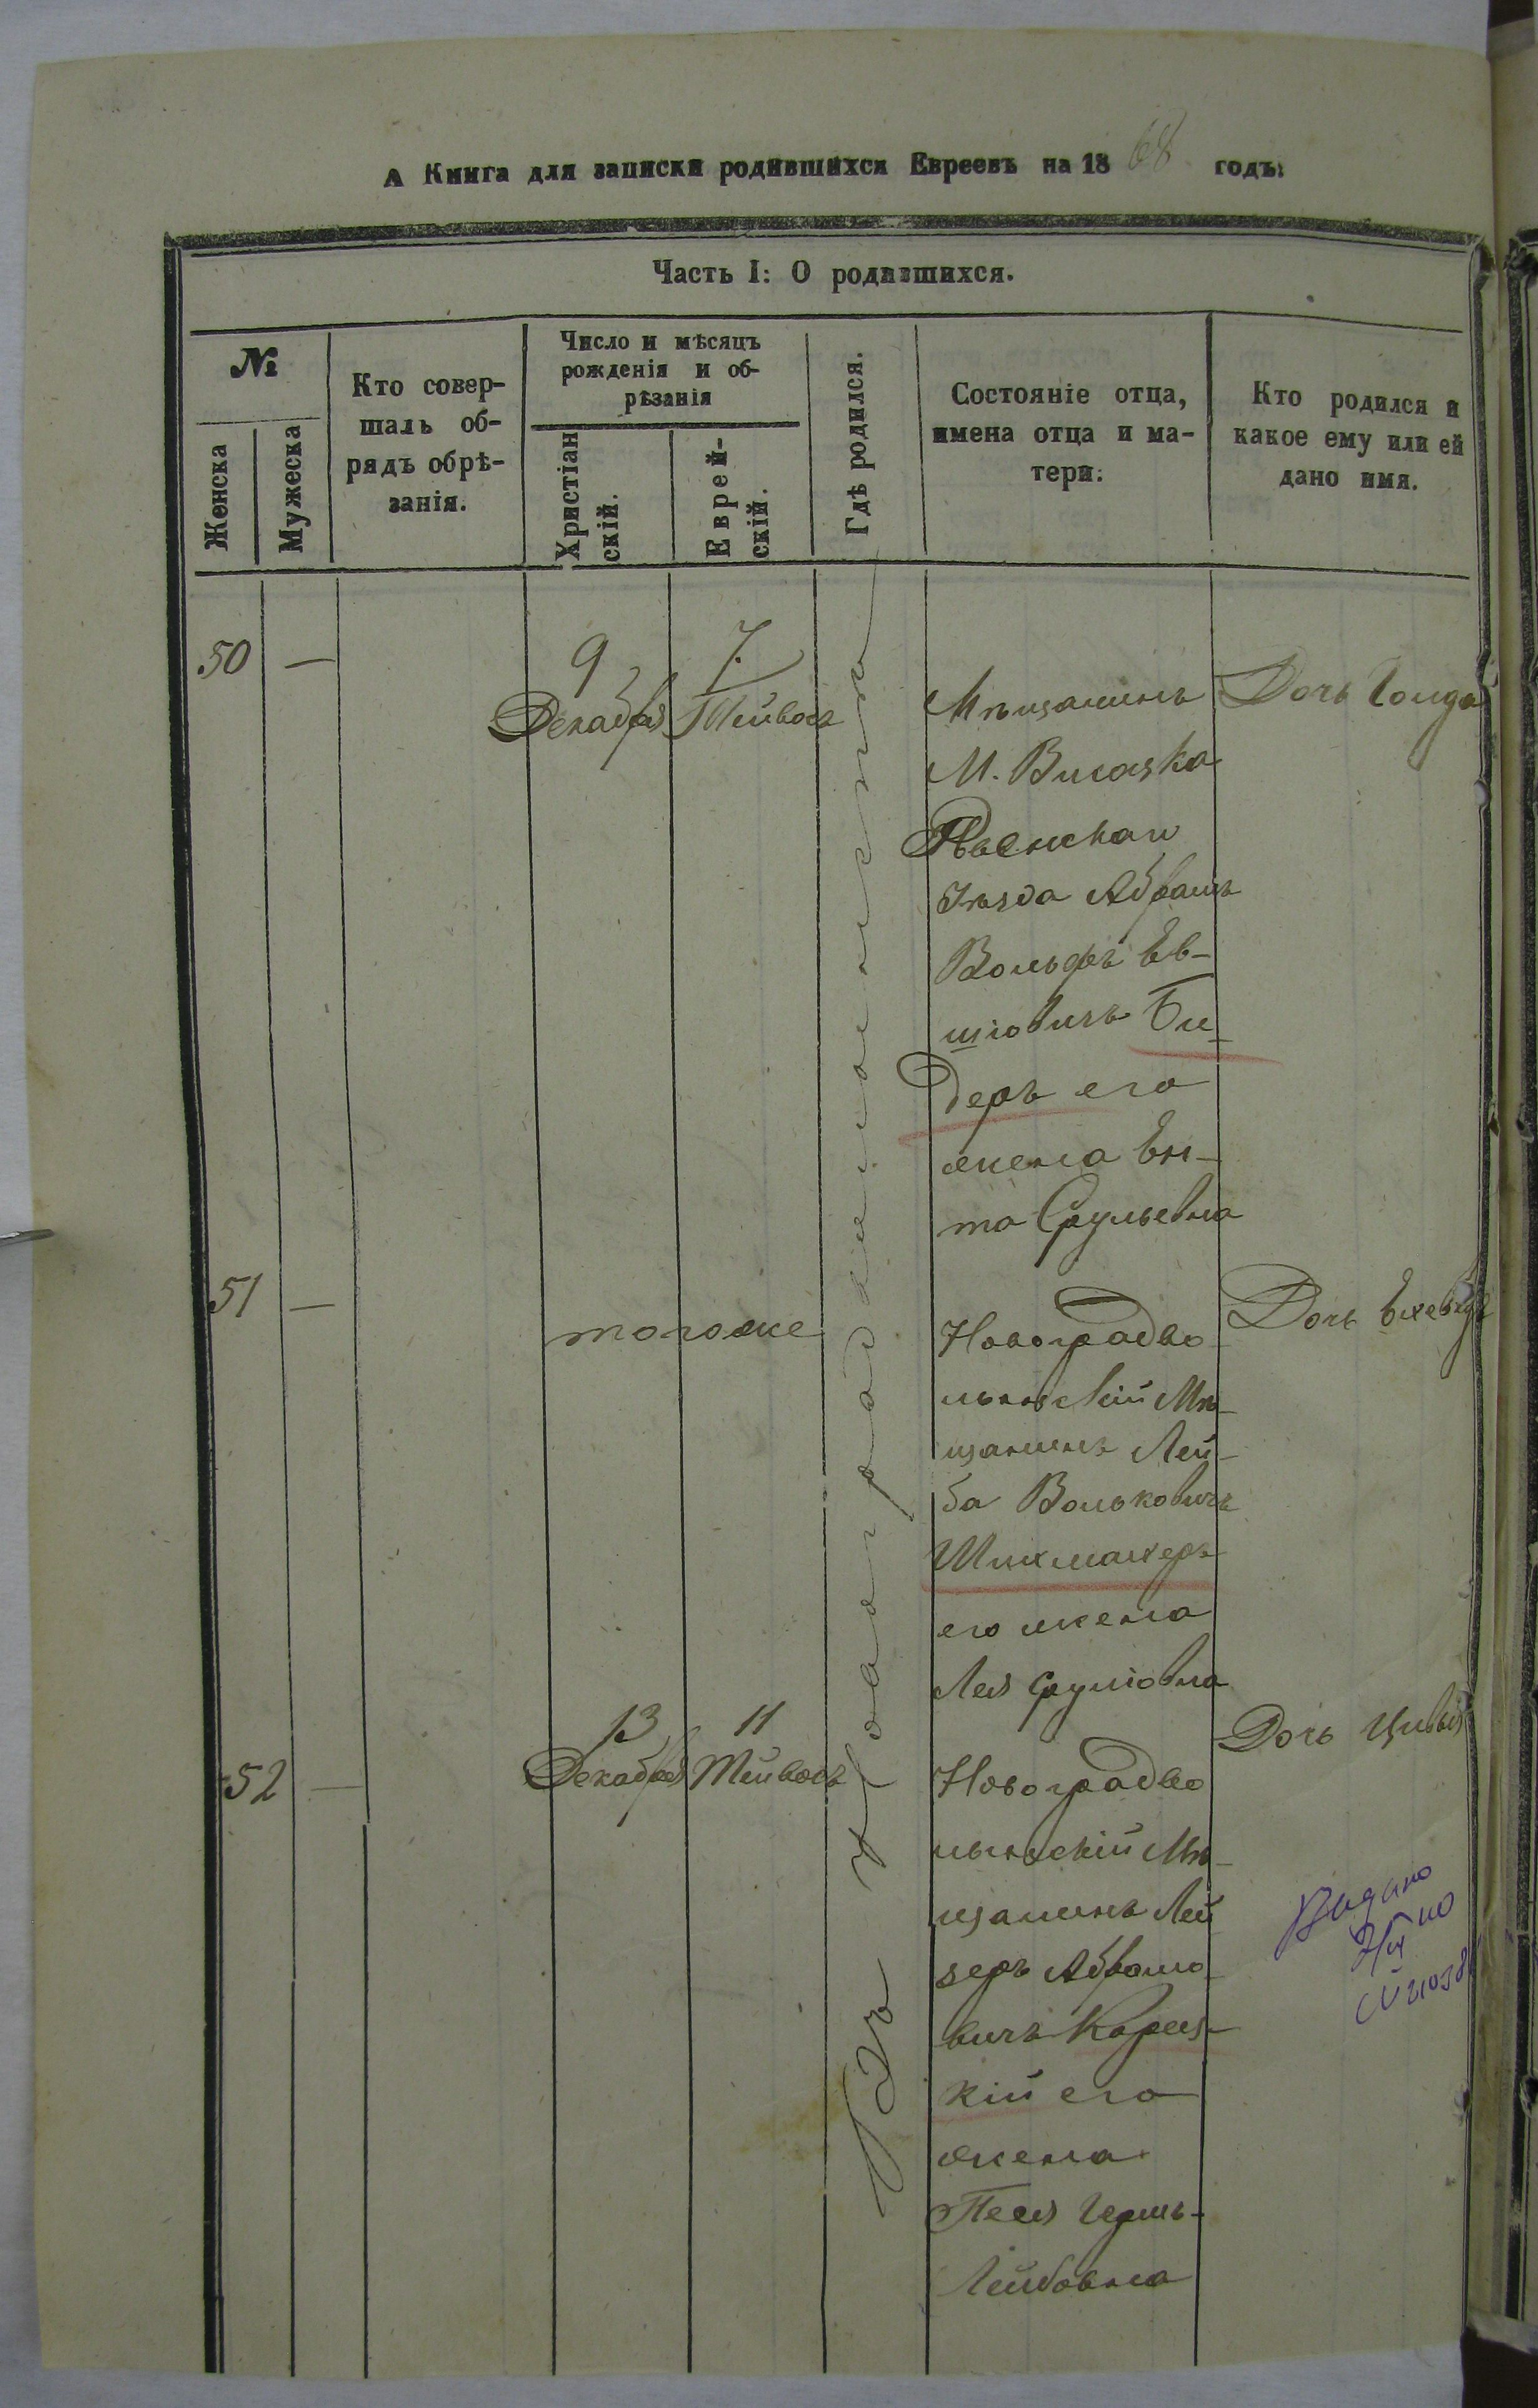 А Книга для записки родившихся Евреевъ на 1868 годъ:
Часть I: О родившихся.
№
Женска
Мужеска
Кто совер-
шалъ об-
рядъ обрѣ-
занія.
Число и мѣсяцъ
рожденія и об-
рѣзанія
Христіан
скій.
Еврей-
скій.
Гдѣ родился.
Состояніе отца,
имена отца и ма-
тери.
Кто родился и
какое ему или ей
дано имя.
Въ Новоградволынскѣ
50 —
9
Декабря
7.
Тейвосъ
Мѣщанинъ
М.
Ровенскаго
Уѣзда Абрамъ
Вольфъ Ев-
шіовичъ Би-
деръ его
жена Ен-
та Срульевна
Дочь Голда
51 —
тогоже
Новоградво
лынскій Мѣ-
щанинъ Лей-
ба Вольковичъ
Шихмахеръ
его жена
Лея Сруліовна
Дочь
52 —
13
Декабря
11
Тейвосъ
Новоградво
лынскій Мѣ-
щанинъ Лей
зеръ Абрамо-
вичъ Корец-
кій его
жена
Песя Герш-
Лейбовна
Дочь Цивья
Видано